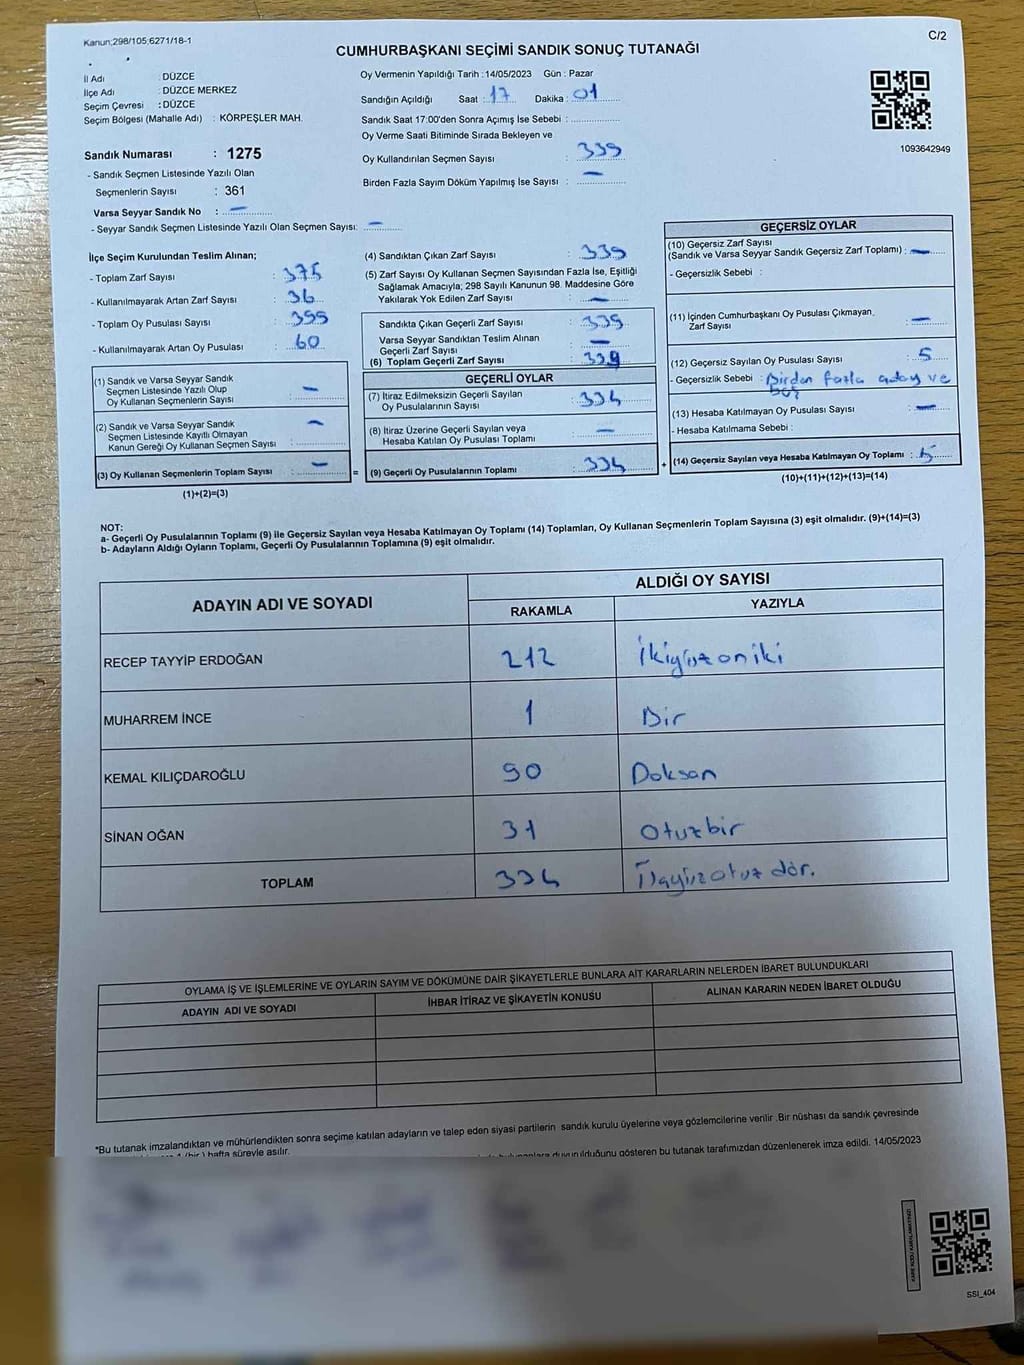 Kanun;298/105;6271/18-1
C/2
CUMHURBAŞKANI SEÇİMİ SANDIK SONUÇ TUTANAĞI
İl Adı : DÜZCE
İlçe Adı : DÜZCE MERKEZ
Seçim Çevresi : DÜZCE
Seçim Bölgesi (Mahalle Adı) : KÖRPEŞLER MAH.
Sandık Numarası : 1275
- Sandık Seçmen Listesinde Yazılı Olan
Seçmenlerin Sayısı : 361
Varsa Seyyar Sandık No : —
- Seyyar Sandık Seçmen Listesinde Yazılı Olan Seçmen Sayısı: —
Oy Vermenin Yapıldığı Tarih :14/05/2023 Gün : Pazar
Sandığın Açıldığı Saat : 17 Dakika : 01
Sandık Saat 17:00'den Sonra Açımış İse Sebebi :
Oy Verme Saati Bitiminde Sırada Bekleyen ve
Oy Kullandırılan Seçmen Sayısı : 339
Birden Fazla Sayım Döküm Yapılmış İse Sayısı : —
1093642949
İlçe Seçim Kurulundan Teslim Alınan;
- Toplam Zarf Sayısı : 375
- Kullanılmayarak Artan Zarf Sayısı : 36
- Toplam Oy Pusulası Sayısı : 399
- Kullanılmayarak Artan Oy Pusulası : 60
(1) Sandık ve Varsa Seyyar Sandık
Seçmen Listesinde Yazılı Olup
Oy Kullanan Seçmenlerin Sayısı : —
(2) Sandık ve Varsa Seyyar Sandık
Seçmen Listesinde Kayıtlı Olmayan
Kanun Gereği Oy Kullanan Seçmen Sayısı : —
(3) Oy Kullanan Seçmenlerin Toplam Sayısı : —
(1)+(2)=(3)
(4) Sandıktan Çıkan Zarf Sayısı : 339
(5) Zarf Sayısı Oy Kullanan Seçmen Sayısından Fazla İse, Eşitliği
Sağlamak Amacıyla; 298 Sayılı Kanunun 98. Maddesine Göre
Yakılarak Yok Edilen Zarf Sayısı : —
Sandıkta Çıkan Geçerli Zarf Sayısı : 339
Varsa Seyyar Sandıktan Teslim Alınan
Geçerli Zarf Sayısı : —
(6) Toplam Geçerli Zarf Sayısı : 339
GEÇERLİ OYLAR
(7) İtiraz Edilmeksizin Geçerli Sayılan
Oy Pusulalarının Sayısı : 334
(8) İtiraz Üzerine Geçerli Sayılan veya
Hesaba Katılan Oy Pusulası Toplamı : —
= (9) Geçerli Oy Pusulalarının Toplamı : 334 +
GEÇERSİZ OYLAR
(10) Geçersiz Zarf Sayısı
(Sandık ve Varsa Seyyar Sandık Geçersiz Zarf Toplamı) : —
- Geçersizlik Sebebi :
(11) İçinden Cumhurbaşkanı Oy Pusulası Çıkmayan
Zarf Sayısı : —
(12) Geçersiz Sayılan Oy Pusulası Sayısı : 5
- Geçersizlik Sebebi : Birden fazla aday ve
boş
(13) Hesaba Katılmayan Oy Pusulası Sayısı : —
- Hesaba Katılmama Sebebi :
(14) Geçersiz Sayılan veya Hesaba Katılmayan Oy Toplamı : 5
(10)+(11)+(12)+(13)=(14)
NOT:
a- Geçerli Oy Pusulalarının Toplamı (9) ile Geçersiz Sayılan veya Hesaba Katılmayan Oy Toplamı (14) Toplamları, Oy Kullanan Seçmenlerin Toplam Sayısına (3) eşit olmalıdır. (9)+(14)=(3)
b- Adayların Aldığı Oyların Toplamı, Geçerli Oy Pusulalarının Toplamına (9) eşit olmalıdır.
ADAYIN ADI VE SOYADI
ALDIĞI OY SAYISI
RAKAMLA YAZIYLA
RECEP TAYYİP ERDOĞAN 212 İkiyüzoniki
MUHARREM İNCE 1 Bir
KEMAL KILIÇDAROĞLU 90 Doksan
SİNAN OĞAN 31 Otuzbir
TOPLAM 334 Üçyüzotuz dör.
OYLAMA İŞ VE İŞLEMLERİNE VE OYLARIN SAYIM VE DÖKÜMÜNE DAİR ŞİKAYETLERLE BUNLARA AİT KARARLARIN NELERDEN İBARET BULUNDUKLARI
ADAYIN ADI VE SOYADI İHBAR İTİRAZ VE ŞİKAYETİN KONUSU ALINAN KARARIN NEDEN İBARET OLDUĞU
*Bu tutanak imzalandıktan ve mühürlendikten sonra seçime katılan adayların ve talep eden siyasi partilerin sandık kurulu üyelerine veya gözlemcilerine verilir .Bir nüshası da sandık çevresinde
1 (bir ) hafta süreyle asılır.
duyurulduğunu gösteren bu tutanak tarafımızdan düzenlenerek imza edildi. 14/05/2023
SSI_404